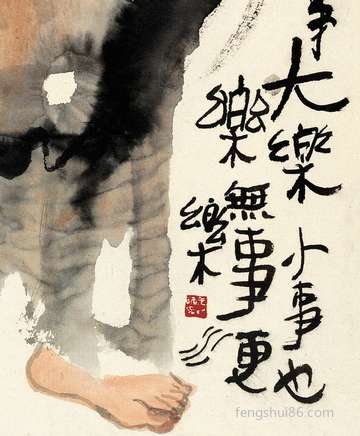 事大樂小事也
樂無事更
樂
fengshui86.com